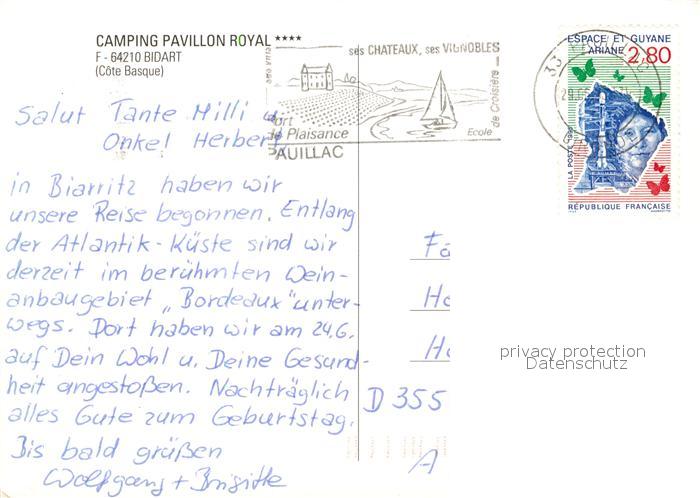 CAMPING PAVILLON ROYAL ****
F - 64210 BIDART
(Côte Basque)
ses CHATEAUX, ses VIGNOBLES
Port
de Plaisance
PAUILLAC
Ecole
de Croisière
33
ESPACE ET GUYANE
ARIANE 2,80
LA POSTE
RÉPUBLIQUE FRANÇAISE
Salut Tante Milli u.
Onkel Herbert
in Biarritz haben wir
unsere Reise begonnen. Entlang
der Atlantik-Küste sind wir
derzeit im berühmten Wein-
anbaugebiet „Bordeaux" unter-
wegs. Dort haben wir am 24.6.
auf Dein Wohl u. Deine Gesund-
heit angestoßen. Nachträglich
alles Gute zum Geburtstag.
Bis bald grüßen
Wolfgang + Brigitte
Fa
Ho
Ha
D 355
A
privacy protection
Datenschutz